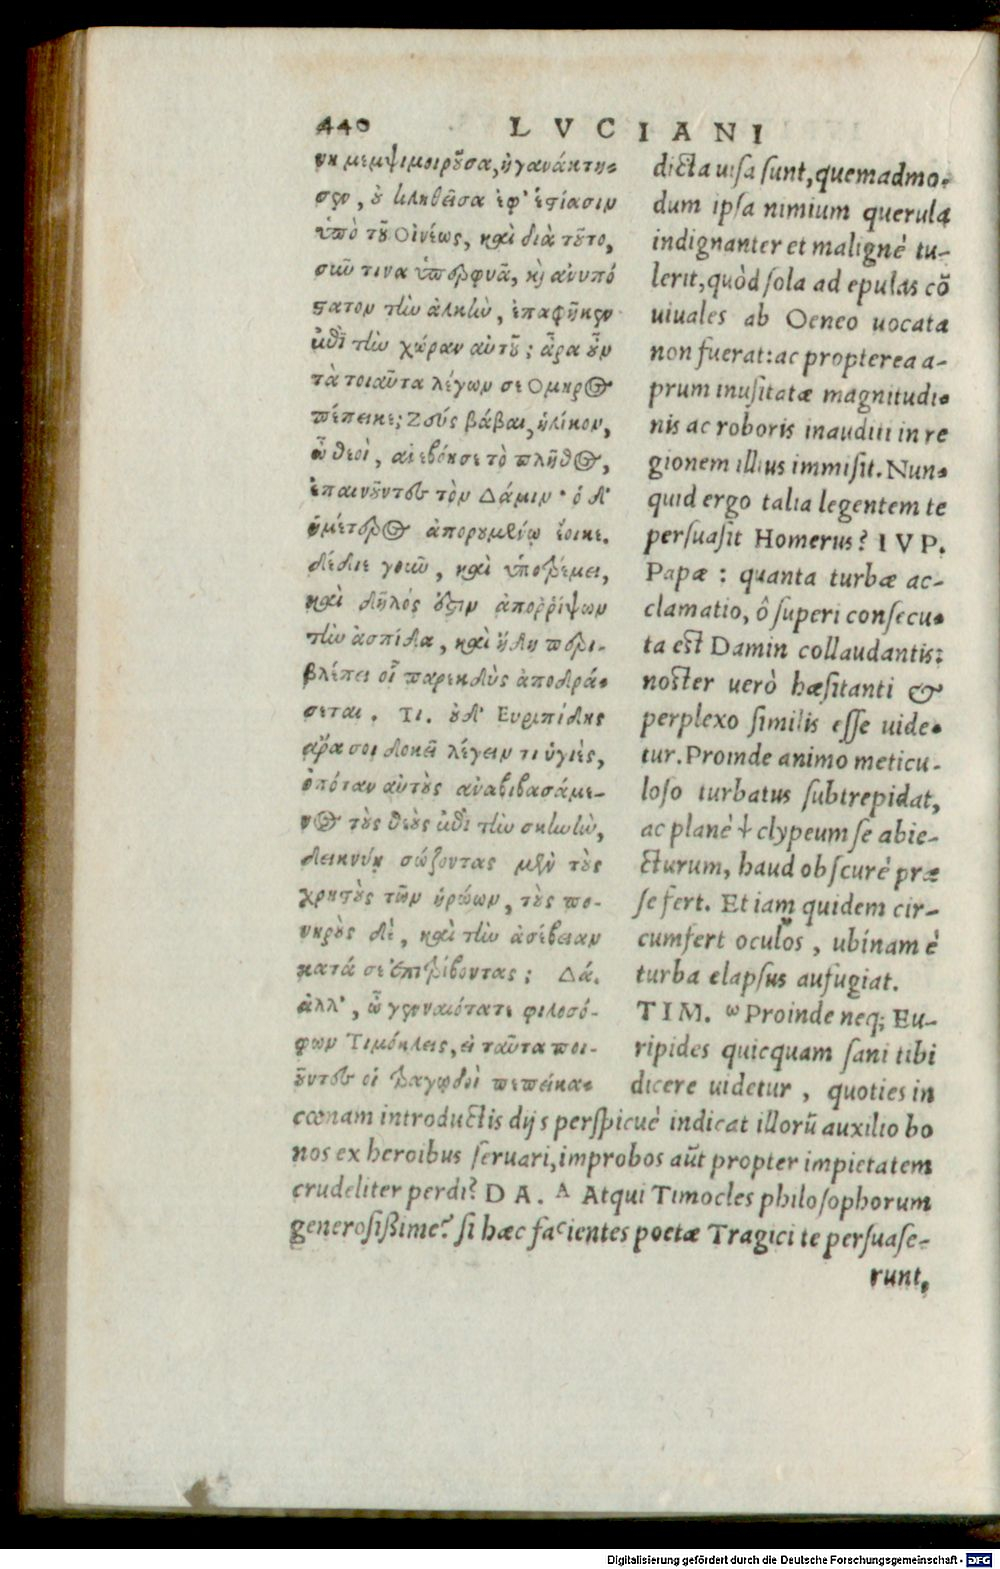 440 LVCIANI
νη μεμψιμοιροῦσα, ἠγανάκτη-
σεν, οὐ κληθεῖσα ἐφ' ἑστίασιν
ὑπὸ τοῦ Οἰνέως, καὶ διὰ τοῦτο,
σῦν τινα ὑπερφυᾶ, καὶ ἀνυπό
στατον τὴν ἀλκὴν, ἐπαφῆκεν
ἐπὶ τὴν χώραν αὐτοῦ; ἆρα οὖν
τὰ τοιαῦτα λέγων σε Ομηρος
πέπεικε; Ζεύς βάβαι, ἡλίκον,
ὦ θεοὶ, ἀνεβόησε τὸ πλῆθος,
ἐπαινοῦντες τὸν Δάμιν· ὁ δ'
ἡμέτερος ἀπορουμένῳ ἔοικε.
δέδιε γοῦν, καὶ ὑποτρέμει,
καὶ δῆλός ἐστιν ἀποῤῥίψων
τὴν ἀσπίδα, καὶ ἤδη περι-
βλέπει οἷ παρεκδὺς ἀποδρά-
σεται. Τι. οὐδ' Ευριπίδης
ἆρα σοι δοκεῖ λέγειν τι ὑγιὲς,
ὁπόταν αὐτοὺς ἀναβιβασάμε-
νος τοὺς θεοὺς ἐπὶ τὴν σκηνὴν,
δεικνύῃ σώζοντας μὲν τοὺς
χρηστοὺς τῶν ἡρώων, τοὺς πο-
νηροὺς δὲ, καὶ τὴν ἀσέβειαν
κατά σε ἐπιτρίβοντας; Δά.
ἀλλ', ὦ γενναιότατε φιλοσό-
φων Τιμόκλεις, εἰ ταῦτα ποι-
οῦντες οἱ τραγῳδοὶ πεπείκα-
dicta uisa sunt, quemadmo-
dum ipsa nimium querula
indignanter et malignè tu-
lerit, quòd sola ad epulas cō
uiuales ab Oeneo uocata
non fuerat: ac propterea a-
prum inusitatæ magnitudi-
nis ac roboris inauditi in re
gionem illius immisit. Nun-
quid ergo talia legentem te
persuasit Homerus? IVP.
Papæ: quanta turbæ ac-
clamatio, ô superi consecu-
ta est Damin collaudantis:
noster uerò hæsitanti &
perplexo similis esse uide-
tur. Proinde animo meticu-
loso turbatus subtrepidat,
ac planè ☩ clypeum se abie-
cturum, haud obscurè præ
se fert. Et iam quidem cir-
cumfert oculos, ubinam è
turba elapsus aufugiat.
TIM. ω Proinde neq; Eu-
ripides quicquam sani tibi
dicere uidetur, quoties in
cœnam introductis dijs perspicuè indicat illorū auxilio bo
nos ex heroibus seruari, improbos aūt propter impietatem
crudeliter perdi? DA. A Atqui Timocles philosophorum
generosißime? si hæc facientes poetæ Tragici te persuase-
runt,
Digitalisierung gefördert durch die Deutsche Forschungsgemeinschaft - DFG